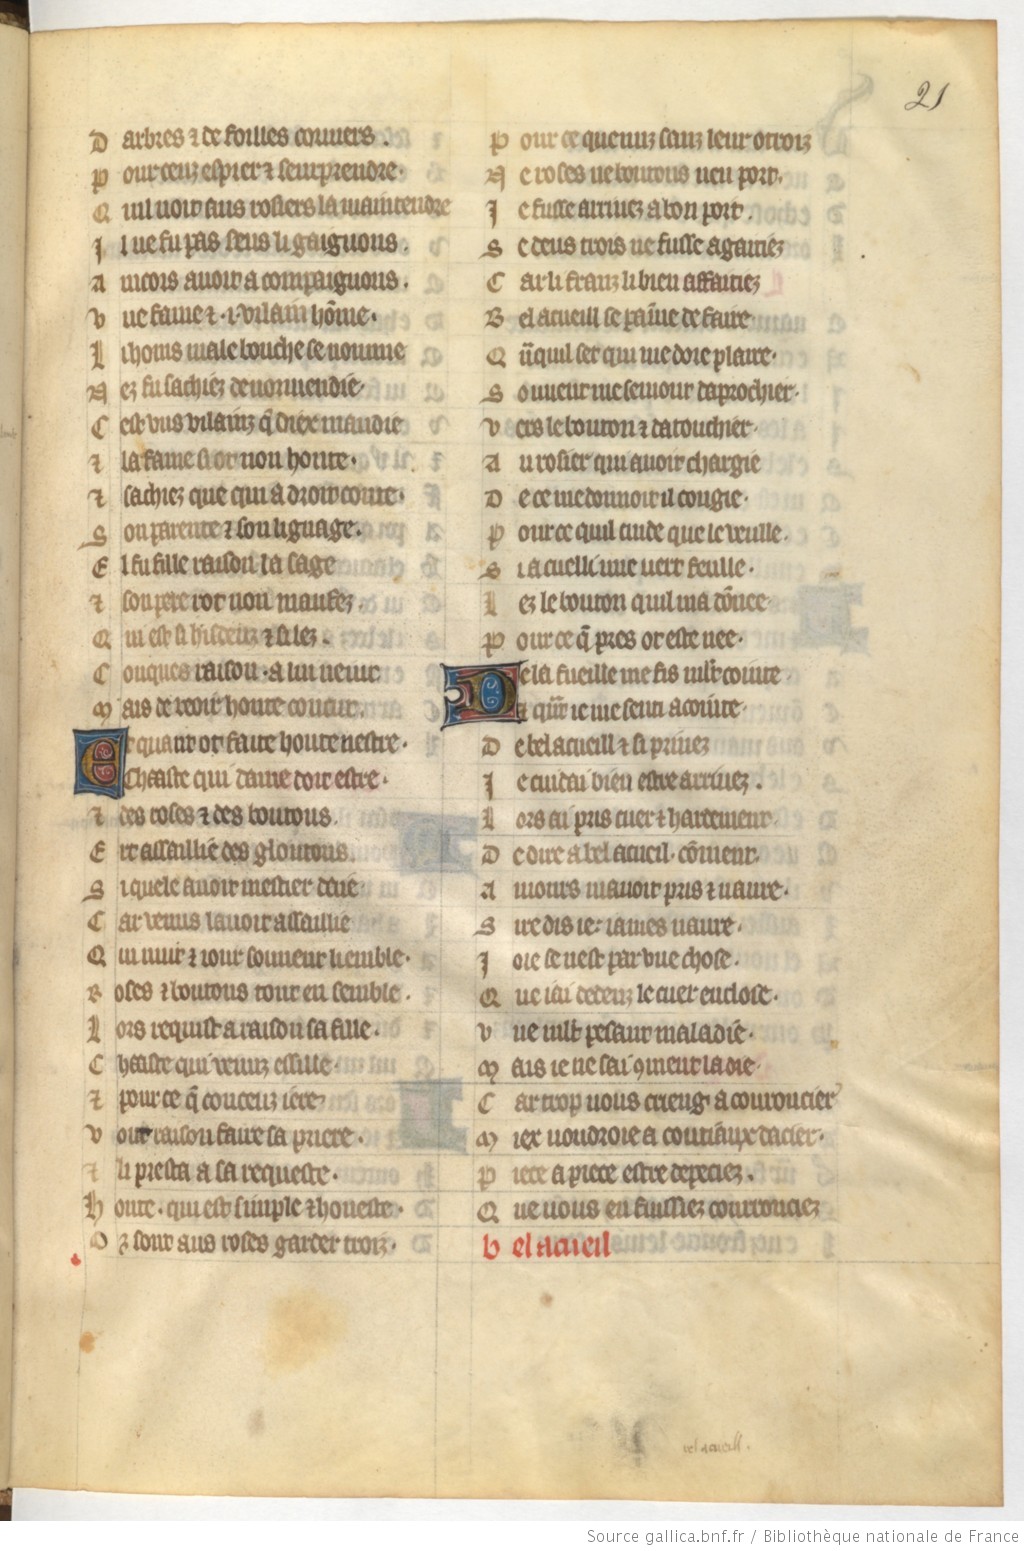 21
D arbres ⁊ de foilles couuers .
P our ceuz espier ⁊ semprendre .
Q uil voit aus rosiers la main tendre
I l ne fu pas seus li gaignons .
A incois auoit a compaignons .
V ne fame ⁊ .i. vilain hōme .
L i hons male bouche se nomme
N ez fu sachiez de normendie .
C est vns vilainz q̄ diex maudie
⁊ la fame si ot non honte .
⁊ sachiez que qui a droit conte .
S on parente ⁊ son lignage .
E l fu fille raison la sage
⁊ son pere rot non maufez .
Q ui est si hisdeuz ⁊ si lez .
C onques raison . a lui ne iut
M ais de veoir honte concut .
E t quant ot faite honte nestre .
Chaaste qui dame doit estre .
⁊ des roses ⁊ des boutons .
E rt assaillie des gloutons .
S i quele auoit mestier daie
C ar venus lauoit assaillie
Q ui nuit ⁊ iour souuent li emble .
R oses ⁊ boutons tout en semble .
L ors requist a raison sa fille .
C haaste qui venuz essille .
⁊ pource q̄ conceuz iere
V out raison faire sa priere .
⁊ li presta a sa requeste .
H onte . qui est simple ⁊ honeste .
O z sont aus roses garder troiz .
P our ce que nuz sanz leur otroiz
N e roses ne boutons neu port .
I e fusse arriuez a bon port .
S e deus trois ne fusse agaitiez
C ar li franz li bien affaitiez
B el acueill se painne de faire
Q ̄nquil set qui me doie plaire .
S ouuent me semont daprochier .
V ers le bouton ⁊ datouchier .
A u rosier qui auoit chargie
D e ce me donnoit il congie .
P our ce quil cuide que ie veulle .
S i a cuelli une vert feulle .
L ez le bouton quil ma dōnee
P our ce q̄ pres ot este nee .
D e la fueille me fis mlt cointe .
⁊ qūt ie me senti acointe .
D e bel acueill ⁊ si priuez
I e cuidai bien estre arriuez .
L ors ai pris cuer ⁊ hardement
D e dire a bel acueil . cōment .
A mours mauoit pris ⁊ naure .
S ire dis ie . iames naure .
I oie se nest par vne chose .
Q ue iai dedenz le cuer enclose .
V ne mlt pesant maladie .
M ais ie ne sai ꝯment la die .
C ar trop uous crieng . a couroucier
M iex uoudroie a coutiaux dacier .
P iece a piece estre depeciez .
Q ue uous en fuissiez courrouciez
b el acueil
bel acueill .
Source gallica.bnf.fr / Bibliothèque nationale de France